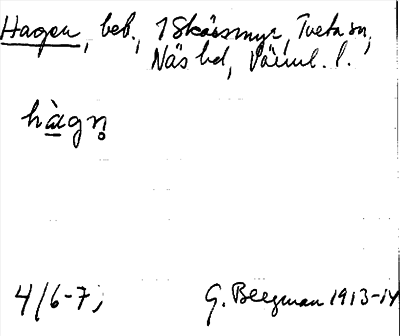 Hagen, beb., 1 Skåssmyr, Tveta sn,
Näs hd, Värml. l.
hàgn̥
4/6-7, G. Bergman 1913-14